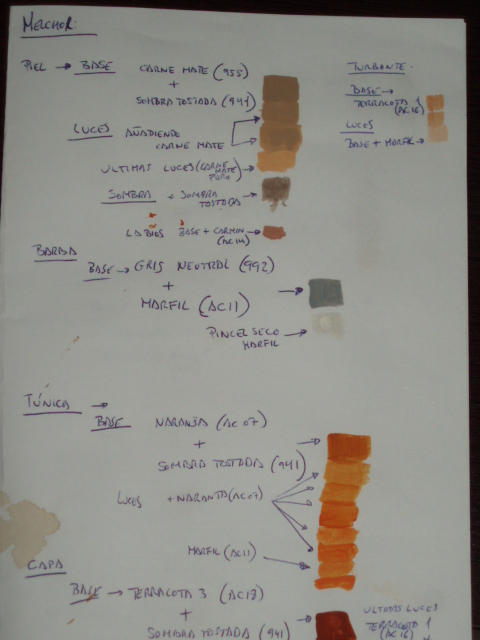 MELCHOR:
PIEL → BASE CARNE MATE (955)
+
SOMBRA TOSTADA (941)
LUCES AÑADIENDO
CARNE MATE
ULTIMAS LUCES (CARNE MATE PURO)
SOMBRA + SOMBRA
TOSTADA
LABIOS BASE + CARMIN
(AC14)
TURBANTE
BASE →
TERRACOTA 1
(AC16)
LUCES
BASE + MARFIL →
BARBA
BASE → GRIS NEUTRAL (992)
+
MARFIL (AC11)
PINCEL SECO
MARFIL
TÚNICA →
BASE NARANJA (AC07)
+
SOMBRA TOSTADA (941)
LUCES + NARANJA (AC07)
MARFIL (AC11)
CAPA
BASE → TERRACOTA 3 (AC18)
+
SOMBRA TOSTADA (941)
ULTIMAS LUCES
TERRACOTA 1
(AC16)